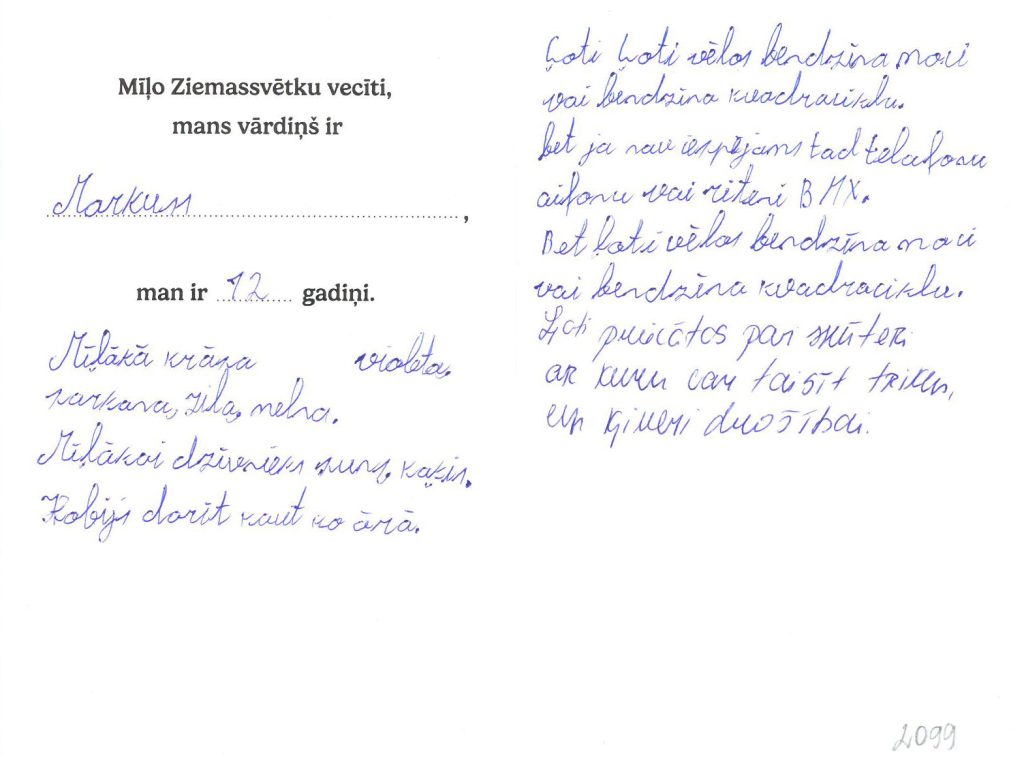 Mīļo Ziemassvētku vecīti,
mans vārdiņš ir
Markuss,
man ir 12 gadiņi.
Mīļākā krāsa violeta,
sarkana, zila, melna.
Mīļākai dzīvnieks suns, kaķis.
Hobijs darīt kaut ko ārā.
Ļoti ļoti vēlos bendzīna moci
vai bendzīna kvadraciklu.
bet ja nav iespējams tad telafonu
aifonu vai riteni BMX.
Bet ļoti vēlos bendzīna moci
vai bendzīna kvadraciklu.
Ļoti priecātos par skūteri
ar kuru var taisīt trikus,
un ķiveri drošībai.
2099